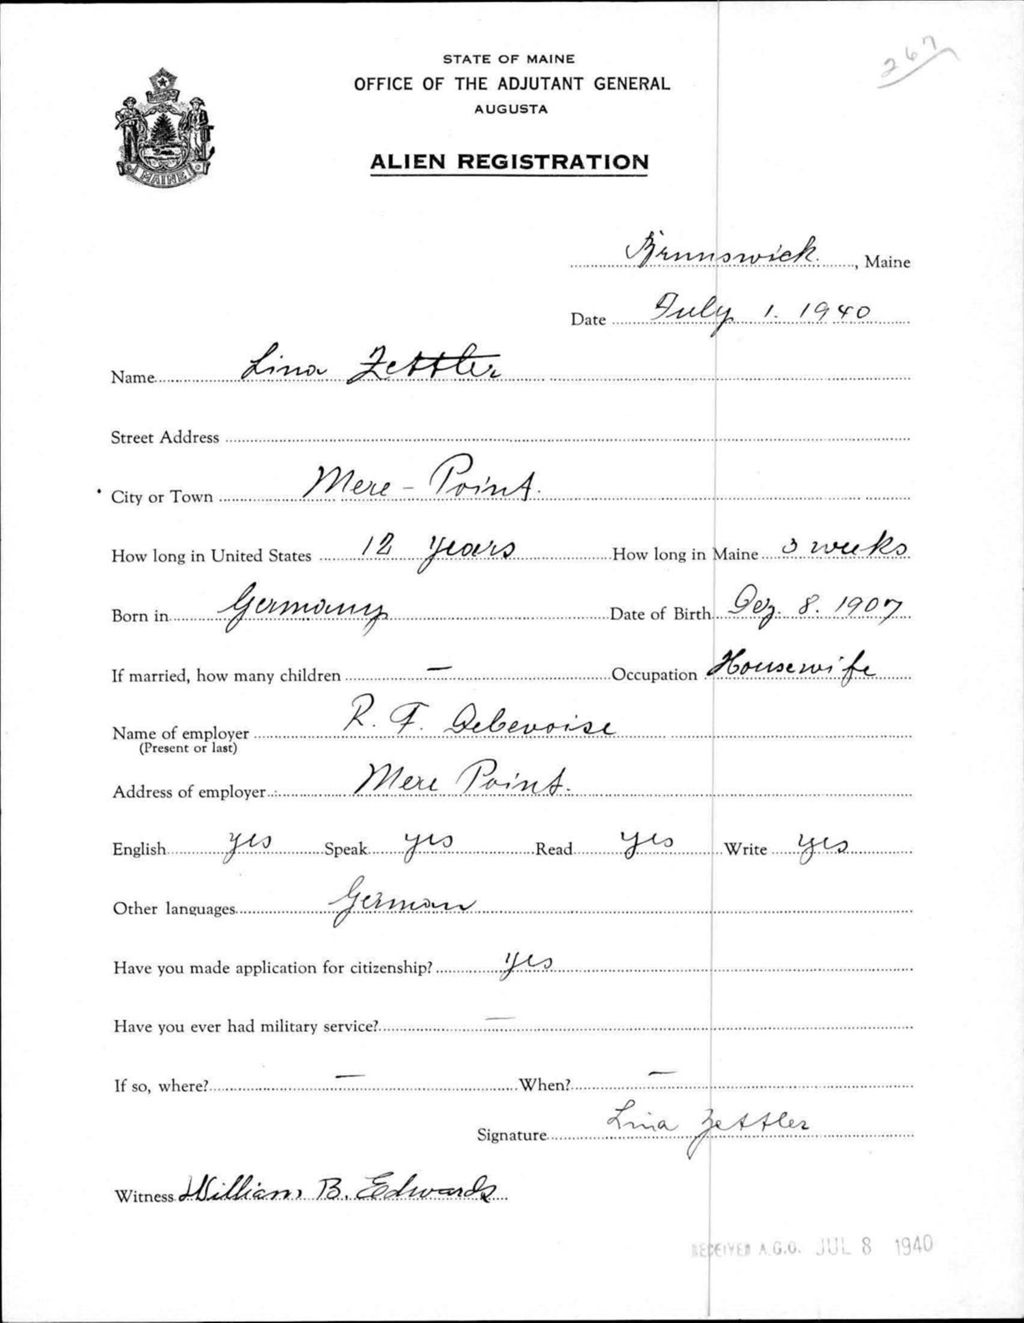 267
STATE OF MAINE
OFFICE OF THE ADJUTANT GENERAL
AUGUSTA
ALIEN REGISTRATION
MAINE
Brunswick, Maine
Date July 1. 1940
Name Lina Zettler
Street Address
City or Town Mere-Point.
How long in United States 12 years How long in Maine 3 weeks
Born in Germany Date of Birth Dez. 8. 1907
If married, how many children — Occupation Housewife
Name of employer R. F. Debevoise
(Present or last)
Address of employer Mere Point.
English yes Speak yes Read yes Write yes
Other languages German
Have you made application for citizenship? yes
Have you ever had military service? —
If so, where? — When? —
Signature Lina Zettler
Witness William B. Edwards
RECEIVED A.G.O. JUL 8 1940